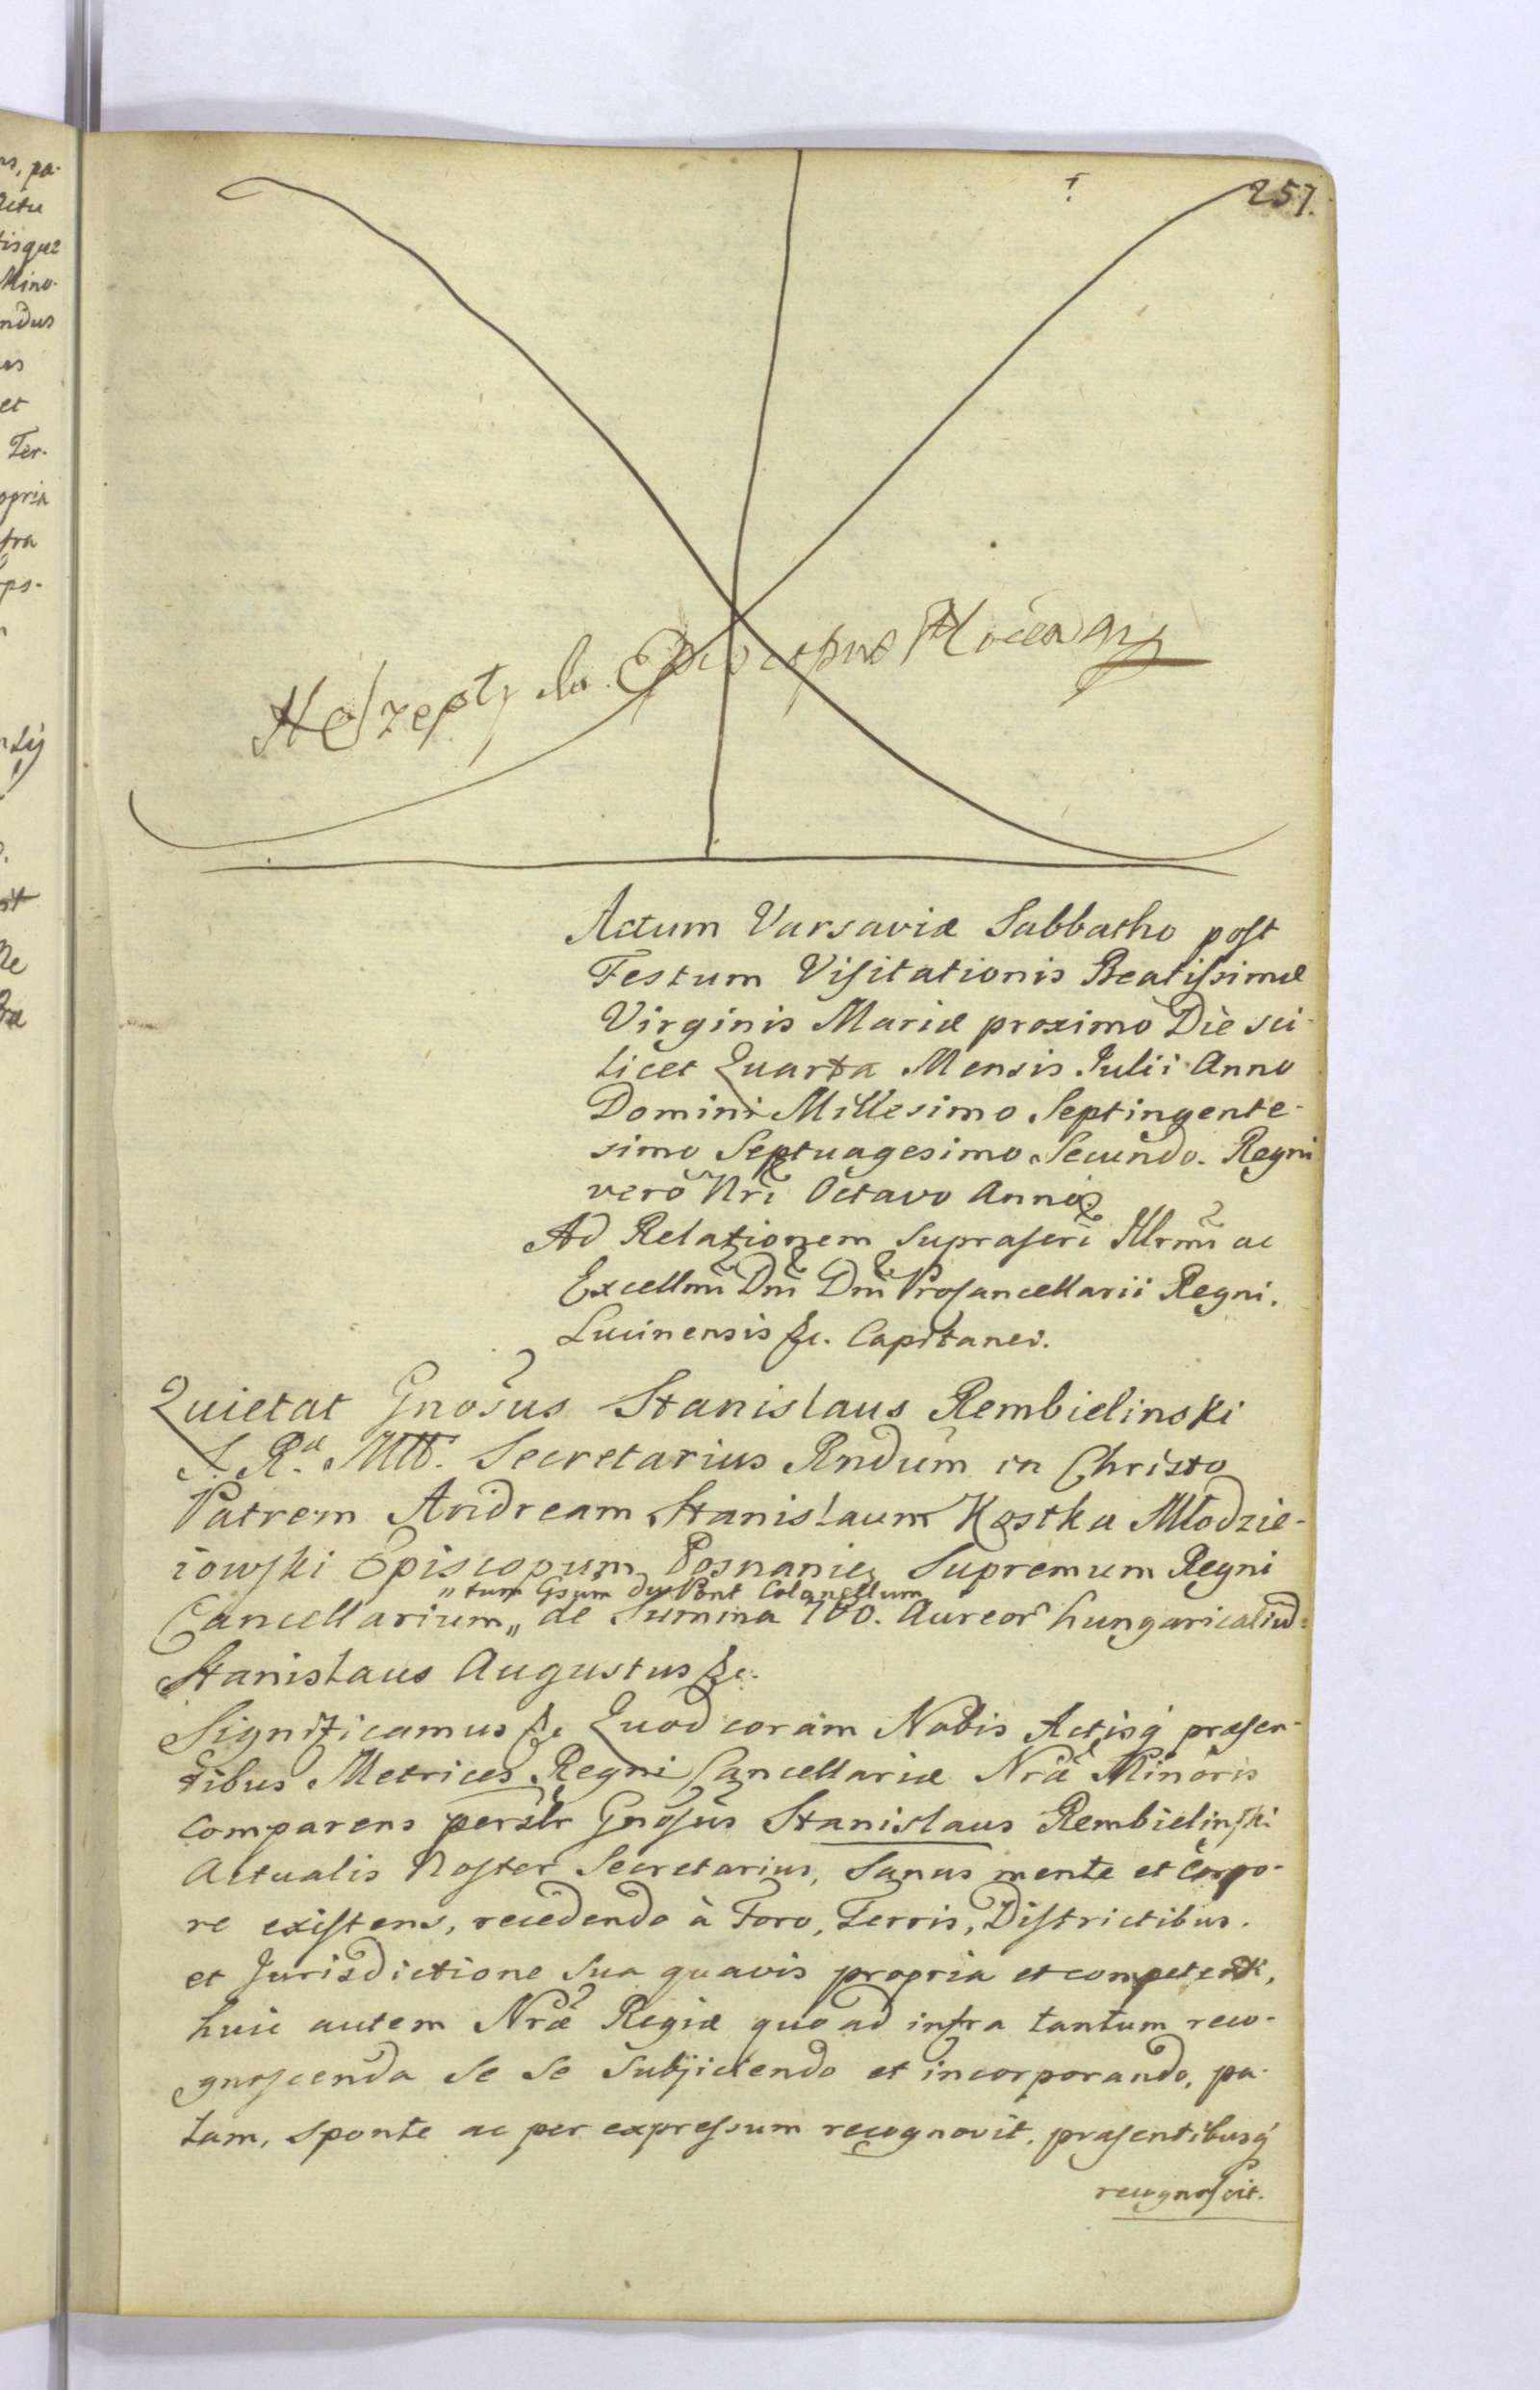 257.
Actum Varsaviæ Sabbatho post
Festum Visitationis Beatissimæ
Virginis Mariæ proximo Die sci-
licet Quarta Mensis Julii Anno
Domini Millesimo Septingente-
simo Septuagesimo Secundo. Regni
verò Nri Octavo Anno
Ad Relationem suprascri Illrmi ac
Excellmi Dni Dni Procancellarii Regni.
Lucinensis &c. Capitanei.
Quietat Gnosus Stanislaus Rembielinski
S. Ræ Mtt. Secretarius Rndum in Christo
Patrem Andream Stanislaum Kostka Młodzie-
iowski Episcopum Posnanie, Supremum Regni
"tum Gsum du Pont Colonellum
Cancellarium„ de Summa 700. Aureor hungaricaliud=
Stanislaus Augustus &c.
Significamus &c Quod coram Nobis Actisq præsen-
tibus Metrices Regni Cancellariæ Nræ Minoris
comparens persltr Gnosus Stanislaus Rembielinski
Actualis Noster Secretarius, Sanus mente et corpo-
re existens, recedendo à Foro, Terris, Districtibus.
et Jurisdictione sua quavis propria et competenti,
huic autem Nræ Regiæ quo ad infra tantum reco-
gnoscenda se se subjiciendo et incorporando, pa-
lam, sponte ac per expressum recognovit, præsentibusq
recognoscit.